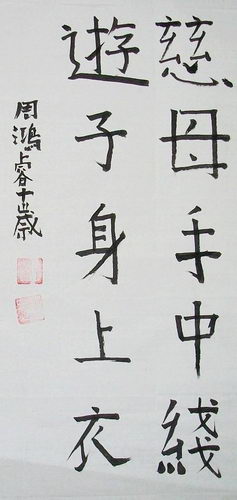 慈母手中綫
遊子身上衣
周鴻睿十歲